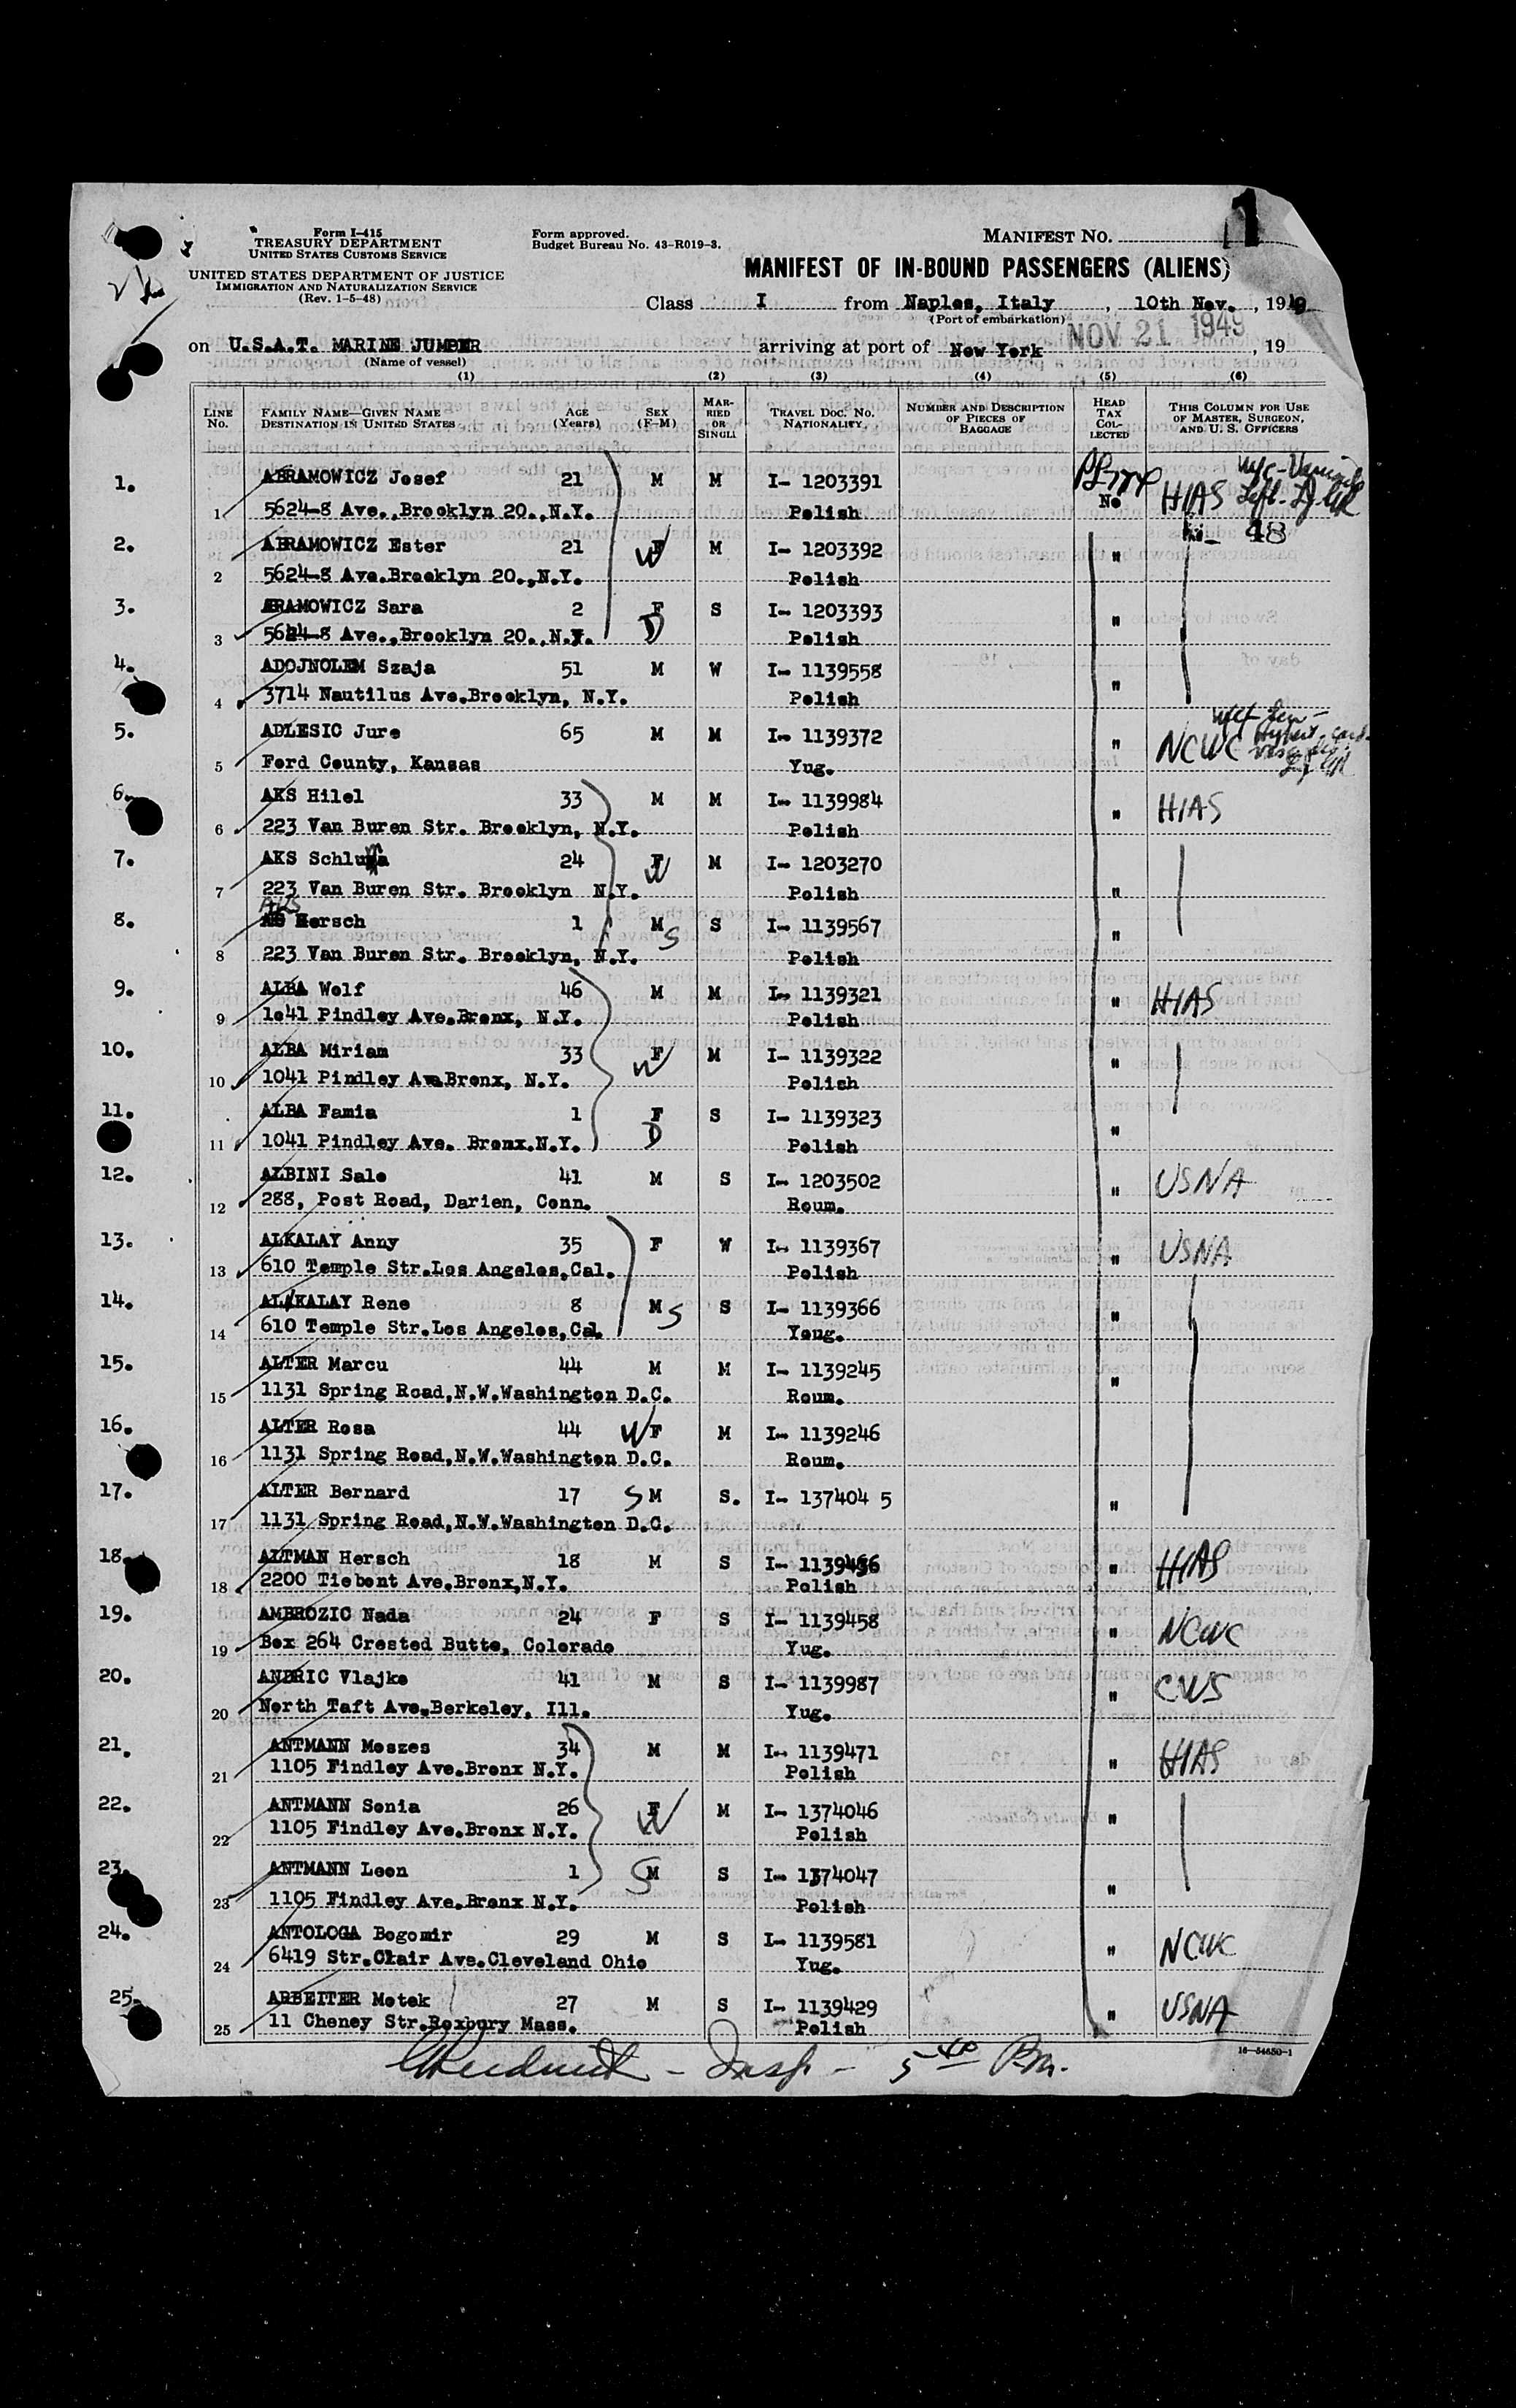 1
Form I-415
TREASURY DEPARTMENT
UNITED STATES CUSTOMS SERVICE
UNITED STATES DEPARTMENT OF JUSTICE
IMMIGRATION AND NATURALIZATION SERVICE
(Rev. 1-5-48)
Form approved.
Budget Bureau No. 43-R019-3.
MANIFEST NO.
MANIFEST OF IN-BOUND PASSENGERS (ALIENS)
Class I from Naples, Italy, 10th Nov., 1949
(Port of embarkation)
NOV 21 1949
on U.S.A.T. MARINE JUMPER arriving at port of New York, 19
(Name of vessel)
(1) (2) (3) (4) (5) (6)
LINE NO. FAMILY NAME—GIVEN NAME DESTINATION IN UNITED STATES AGE (Years) SEX (F-M) MARRIED OR SINGLE TRAVEL DOC. NO. NATIONALITY NUMBER AND DESCRIPTION OF PIECES OF BAGGAGE HEAD TAX COLLECTED THIS COLUMN FOR USE OF MASTER, SURGEON, AND U. S. OFFICERS
1. ABRAMOWICZ Josef 21 M M I- 1203391 No HIAS
1 5624-8 Ave., Brooklyn 20., N.Y. Polish
48
2. ABRAMOWICZ Ester 21 F W M I- 1203392 "
2 5624-8 Ave.Brooklyn 20.,N.Y. Polish
3. ABRAMOWICZ Sara 2 F D S I- 1203393 "
3 5624-8 Ave.,Brooklyn 20.,N.Y. Polish
4. ADOJNOLEM Szaja 51 M W I- 1139558 "
4 3714 Nautilus Ave.Brooklyn, N.Y. Polish
5. ADLESIC Jure 65 M M I- 1139372 " NCWC
5 Ford County, Kansas Yug.
6. AKS Hilel 33 M M I- 1139984 " HIAS
6 223 Van Buren Str. Brooklyn, N.Y. Polish
7. AKS Schluma 24 F W M I- 1203270 "
7 223 Van Buren Str. Brooklyn N.Y. Polish
8. AKS Hersch 1 M S S I- 1139567 "
8 223 Van Buren Str. Brooklyn, N.Y. Polish
9. ALBA Wolf 46 M M I- 1139321 " HIAS
9 1o41 Pindley Ave.Bronx, N.Y. Polish
10. ALBA Miriam 33 F W M I- 1139322 "
10 1041 Pindley Ave.Bronx, N.Y. Polish
11. ALBA Famia 1 F D S I- 1139323 "
11 1041 Pindley Ave. Bronx.N.Y. Polish
12. ALBINI Sale 41 M S I- 1203502 " USNA
12 288, Post Road, Darien, Conn. Roum.
13. ALKALAY Anny 35 F W I- 1139367 " USNA
13 610 Temple Str.Los Angeles,Cal. Polish
14. ALKALAY Rene 8 M S S I- 1139366 "
14 610 Temple Str.Los Angeles,Cal. Youg.
15. ALTER Marcu 44 M M I- 1139245 "
15 1131 Spring Road,N.W.Washington D.C. Roum.
16. ALTER Rosa 44 W F M I- 1139246
16 1131 Spring Road,N.W.Washington D.C. Roum.
17. ALTER Bernard 17 S M S. I- 137404 5 "
17 1131 Spring Road,N.W.Washington D.C.
18. ALTMAN Hersch 18 M S I- 1139456 " HIAS
18 2200 Tiebont Ave.Bronx,N.Y. Polish
19. AMBROZIC Nada 24 F S I- 1139458 " NCWC
19 Box 264 Crested Butte, Colorado Yug.
20. ANDRIC Vlajko 41 M S I- 1139987 " CWS
20 North Taft Ave.Berkeley, Ill. Yug.
21. ANTMANN Moszes 34 M M I- 1139471 " HIAS
21 1105 Findley Ave.Bronx N.Y. Polish
22. ANTMANN Sonia 26 F W M I- 1374046 "
22 1105 Findley Ave.Bronx N.Y. Polish
23. ANTMANN Leon 1 S M S I- 1374047 "
23 1105 Findley Ave.Bronx N.Y. Polish
24. ANTOLOGA Bogomir 29 M S I- 1139581 " NCWC
24 6419 Str.Clair Ave.Cleveland Ohio Yug.
25. ARBEITER Motek 27 M S I- 1139429 " USNA
25 11 Cheney Str.Roxbury Mass. Polish
16-54650-1
- Insp - 5 40 Pm.